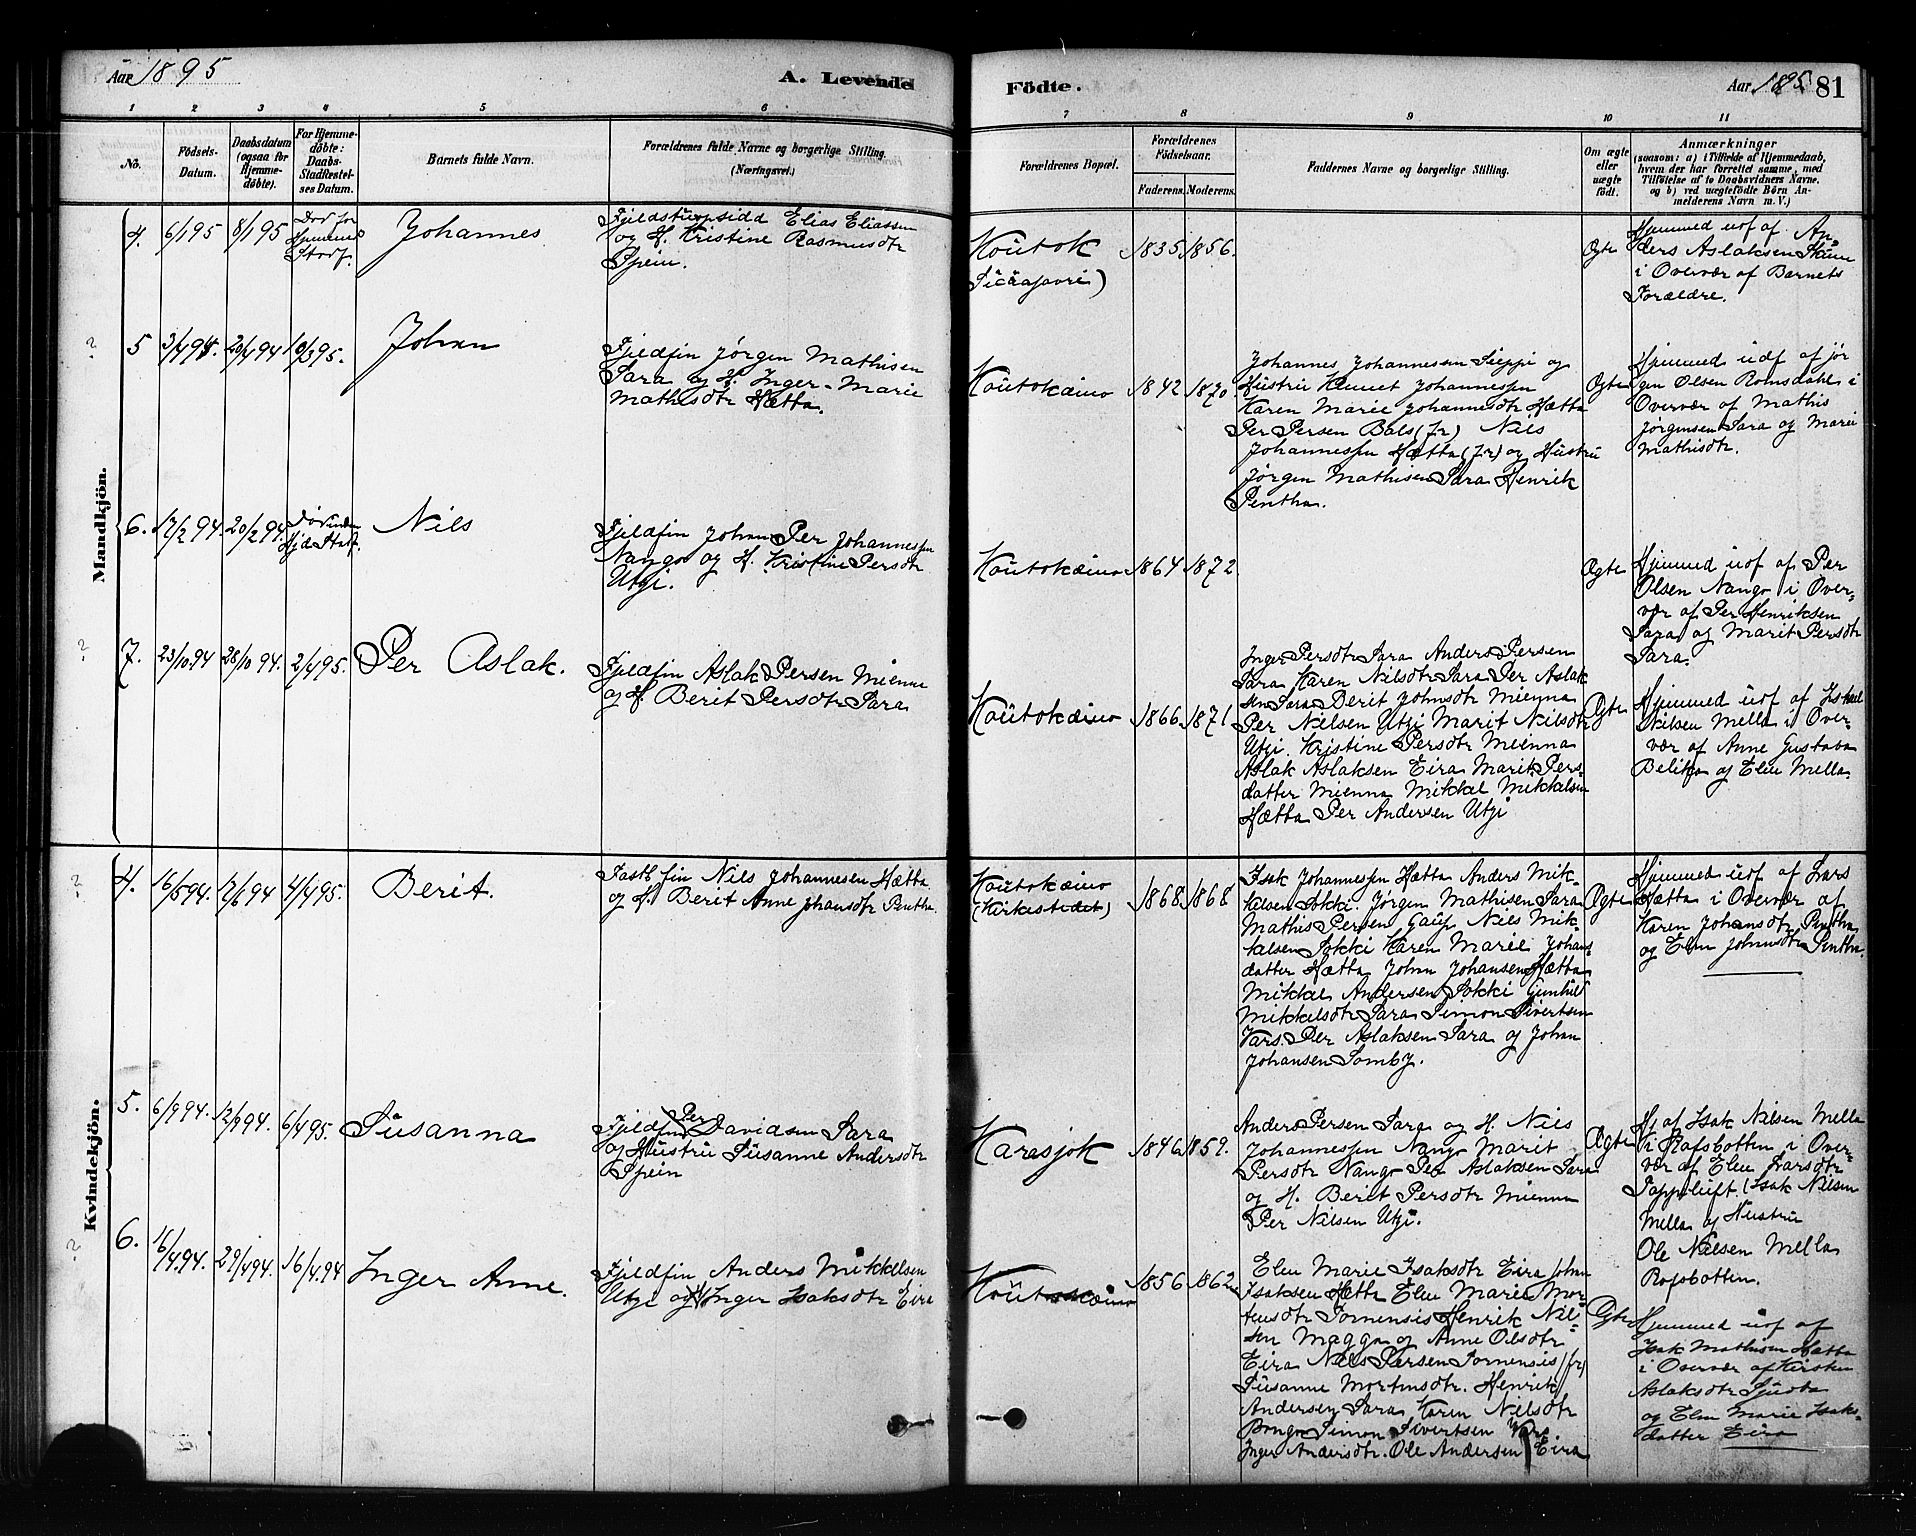 Aar 1895
A. Levende
Födte.
Aar 1895 81
1 2 3 4 5 6 7 8 9 10 11
No.
Födsels-
Datum.
Daabsdatum
(ogsaa for
Hjemme-
döbte).
For Hjemme-
döbte:
Daabs-
Stadfæstel-
ses Datum.
Barnets fulde Navn.
Forældrenes fulde Navne og borgerlige Stilling.
(Næringsvei.)
Forældrenes Bopæl.
Forældrenes
Födselsaar.
Faderens. Moderens.
Faddernes Navne og borgerlige Stilling.
Om ægte
eller
uægte
født.
Anmærkninger
(saasom: a) i Tilfælde af Hjemmedaab,
hvem der har forrettet samme, med
Tilføielse af to Daabsvidners Navne.
og b) ved uægtefödte Börn An-
melderens Navn m. V.)
Mandkjön.
4. 6/1 95 8/1 95
Död før
Hjemmed
Stadf.
Johannes
Elias Eliassen
og H. Kristine Rasmusdtr
Spein.
Koutok
1835 1856.
Ægte
Hjemmed udf af An
ders Aslaksen Skum
i Overvær af Barnets
Forældre.
5 3/4 94. 20/4 94 10/3 95.
Johan
Fjeldfin Jørgen Mathisen
Sara og H. Inger-Marie
Mathisdtr Hætta.
Koutokæino 1842 1870.
Johannes Johannessen Sieppi og
Hustru Johannessen
Karen Marie Johannesdtr Hætta
Per Persen Bals (Jr) Nils
Johannessen Hætta (Jr) og Hustru
Jørgen Mathisen Sara Henrik
Pentha.
Ægte
Hjemmed udf af Jør
gen Olsen Romsdahl i
Overvær af Mathis
Jørgensen Sara og Marie
Mathisdtr.
6. 17/2 94. 20/2 94.
Nils
Fjeldfin Johan Per Johannessen
Nango og H. Kristine Persdtr
Utji.
Koutokæino 1864 1872.
Ægte
Hjemmed udf af Per
Olsen Nango i Over-
vær af Per Henriksen
Sara og Marit Persdtr
Sara.
7. 23/10 94 28/10 94. 2/4 95.
Per Aslak.
Fjeldfin Aslak Persen Mienna
og H. Berit Persdtr Sara
Koutokæino 1866 1871.
Inger Persdtr Sara Anders Persen
Sara Karen Nilsdtr Sara Per Aslak
sen Sara Berit Johnsdtr Mienna
Per Nilsen Utji Marit Nilsdtr
Utji. Kristine Persdtr Mienna
Aslak Aslaksen Eira Marit Pers-
datter Mienna Mikkel Mikkelsen
Hætta Per Andersen Utji
Ægte
Hjemmed udf af
Nilsen Mella i Over-
vær af Anne Gustava
og Elen Mella
Kvindekjön.
4. 16/5 94. 17/6 94 4/4 95.
Berit.
Fastb fin Nils Johannesen Hætta
og H. Berit Anne Johansdtr Pentha.
Koutokæino
(Kirkestedet)
1868 1868
Isak Johannessen Hætta Anders Mik-
kelsen Sokki. Jørgen Mathisen Sara
Mathis Persen Gaup Nils Mik-
kelsen Sokki Karen Marie Johans-
datter Hætta Johan Johansen Hætta
Mikkel Andersen Sokki Gunhild
Mikkelsdtr Sara Simon Sivertsen
Vars. Per Aslaksen Sara og Johan
Johansen Somby.
Ægte
Hjemmed udf af Lars
Hætta i Overvær af
Karen Johansdtr Pentha
og Elen Johnsdtr Pentha.
5. 6/9 94. 12/9 94. 6/4 95.
Susanna
Fjeldfin Per Davidsen Sara
og Hustru Susanne Andersdtr
Spein
Karasjok 1846 1859.
Anders Persen Sara og H. Nils
Johannessen Nango Marit
Persdtr Nango Per Aslaksen Sara
og H. Berit Persdtr Mienna
Per Nilsen Utji.
Ægte
Hj af Isak Nilsen Mella
i Rafsbotten i Over-
vær af Elen Larsdtr
(Isak Nilsen
Mella og Hustru
Ole Nilsen Mella
Rafsbotten.
6. 16/4 94. 29/4 94. 16/4 94
Inger Anne.
Fjeldfin Anders Mikkelsen
Utji og H Inger Isaksdtr Eira
Koutokæino 1856 1862
Elen Marie Isaksdtr Eira Johan
Isaksen Hætta Elen Marie Mor-
tensdtr Tornensis Henrik Nil-
sen Mægga og Anne Olsdtr
Eira Nils Persen Tornensis (Jr)
Susanne Mortensdtr. Henrik
Andersen Sara Karen Nilsdtr
Bongo Simon Sivertsen Vars
Inger Andersdtr. Ole Andersen Eira
Ægte
Hjemmed udf af
Isak Mathisen Hætta
i Overvær af Kirsten
Aslaksdtr
og Elen Marie Isaks-
datter Eira